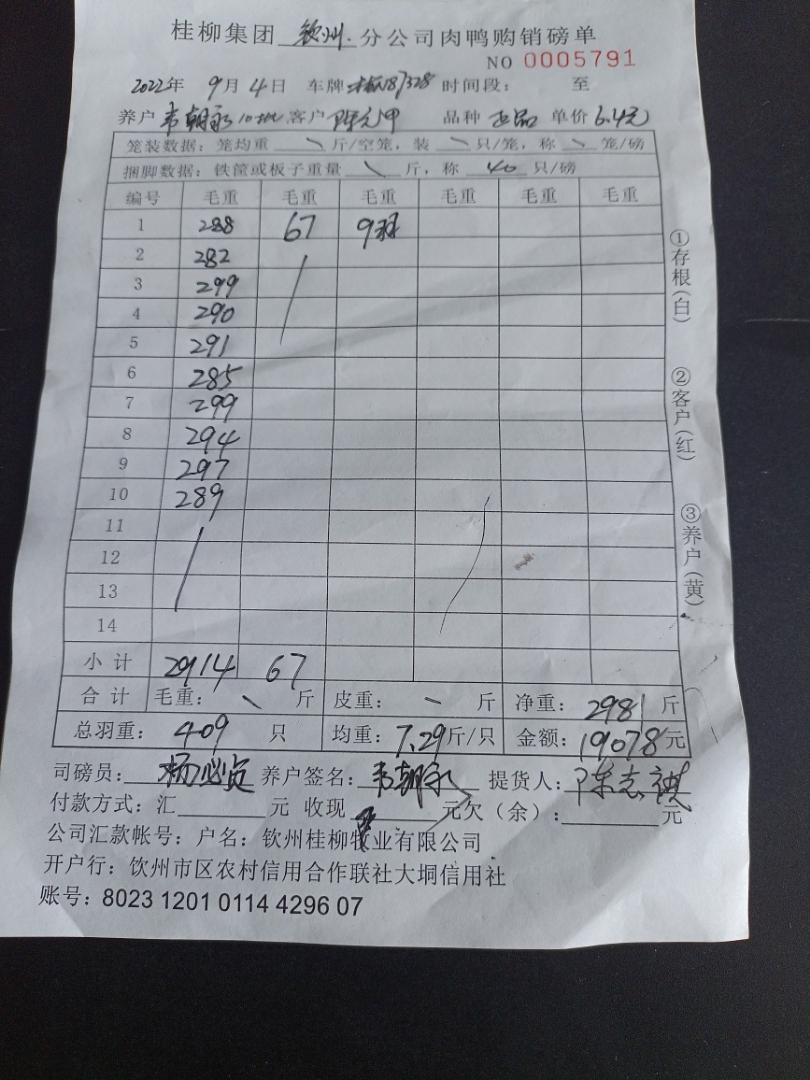 桂柳集团 钦州 分公司肉鸭购销磅单
NO 0005791
2022年 9月 4日 车牌 时间段： 至
养户 韦朝永 客户 品种 正品 单价 6.4元
笼装数据：笼均重 \ 斤/空笼，装 \ 只/笼，称 \ 笼/磅
捆脚数据：铁筐或板子重量 \ 斤，称 40 只/磅
编号 毛重 毛重 毛重 毛重 毛重 毛重
1 288 67 9羽
2 282
3 299
4 290
5 291
6 285
7 299
8 294
9 297
10 289
11
12
13
14
小计 2914 67
合计 毛重： \ 斤 皮重： \ 斤 净重：2981斤
总羽重：409 只 均重：7.29斤/只 金额：19078元
司磅员： 养户签名：韦朝永 提货人：陈志祺
付款方式：汇 元 收现 元欠（余）： 元
公司汇款帐号：户名：钦州桂柳牧业有限公司
开户行：钦州市区农村信用合作联社大垌信用社
账号：8023 1201 0114 4296 07
①存根（白）
②客户（红）
③养户（黄）